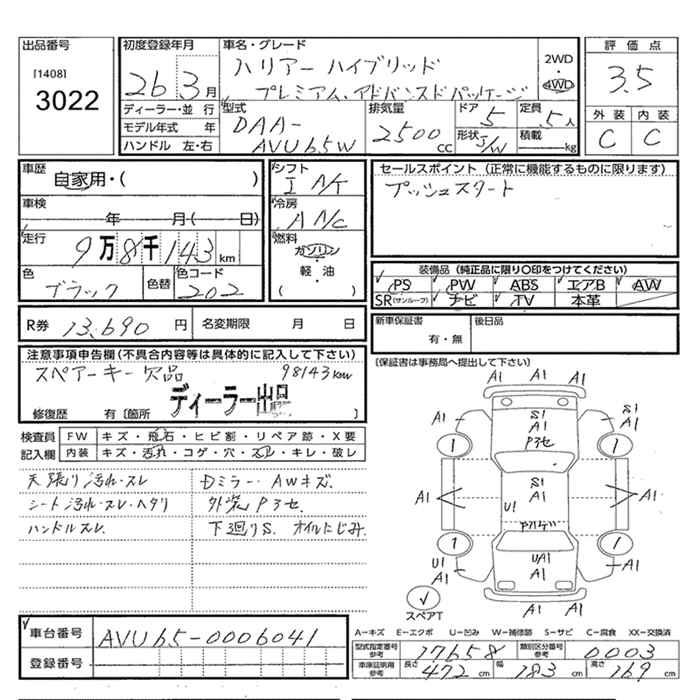 出品番号
[1408]
3022
初度登録年月
26年3月
ディーラー・並行
モデル年式 年
ハンドル 左・右
車名・グレード
ハリアー ハイブリッド
プレミアム、アドバンスドパッケージ
2WD
・
4WD
型式
DAA-
AVU65W
排気量
2500 CC
ドア 5
形状 S/W
定員 5人
積載 kg
評価点
3.5
外装 内装
C C
車歴
自家用・( )
車検
年 月( 日)
走行
9万8千143km
色
ブラック
色替
色コード
202
シフト
I A/T
冷房
A A/C
燃料
ガソリン
・
軽・油
( )
セールスポイント (正常に機能するものに限ります)
プッシュスタート
装備品 (純正品に限り○印をつけてください)
PS PW ABS エアB AW
SR(サンルーフ) ナビ TV 本革
R券 13,690円 名変期限 月 日
新車保証書
有・無
後日品
(保証書は事務局へ提出して下さい)
注意事項申告欄(不具合内容等は具体的に記入して下さい)
スペアーキー欠品 98143km
ディーラー出品
修復歴 有〔箇所 〕
検査員
記入欄
FW キズ・飛石・ヒビ割・リペア跡・X要
内装 キズ・汚れ・コゲ・穴・スレ・キレ・破レ
天張り汚れ・スレ
シート汚れ・スレ・ヘタリ
ハンドルスレ.
Dミラー・AWキズ.
外装P3セ.
下回りS. オイルにじみ.
A1 A1 A1
A1 S1 A1 P3セ S1 A1
1 1
A1 U1 S1 A1 A1
1 1
U1 A1 UA1 A1 A1
スペアT
A―キズ E―エクボ U―凹み W―補修跡 S―サビ C―腐食 XX―交換済
車台番号 AVU65-0006041
登録番号
型式指定番号 参考 17658
類別区分番号 参考 0003
車庫証明用 参考 長さ 472 cm 幅 183 cm 高さ 169 cm